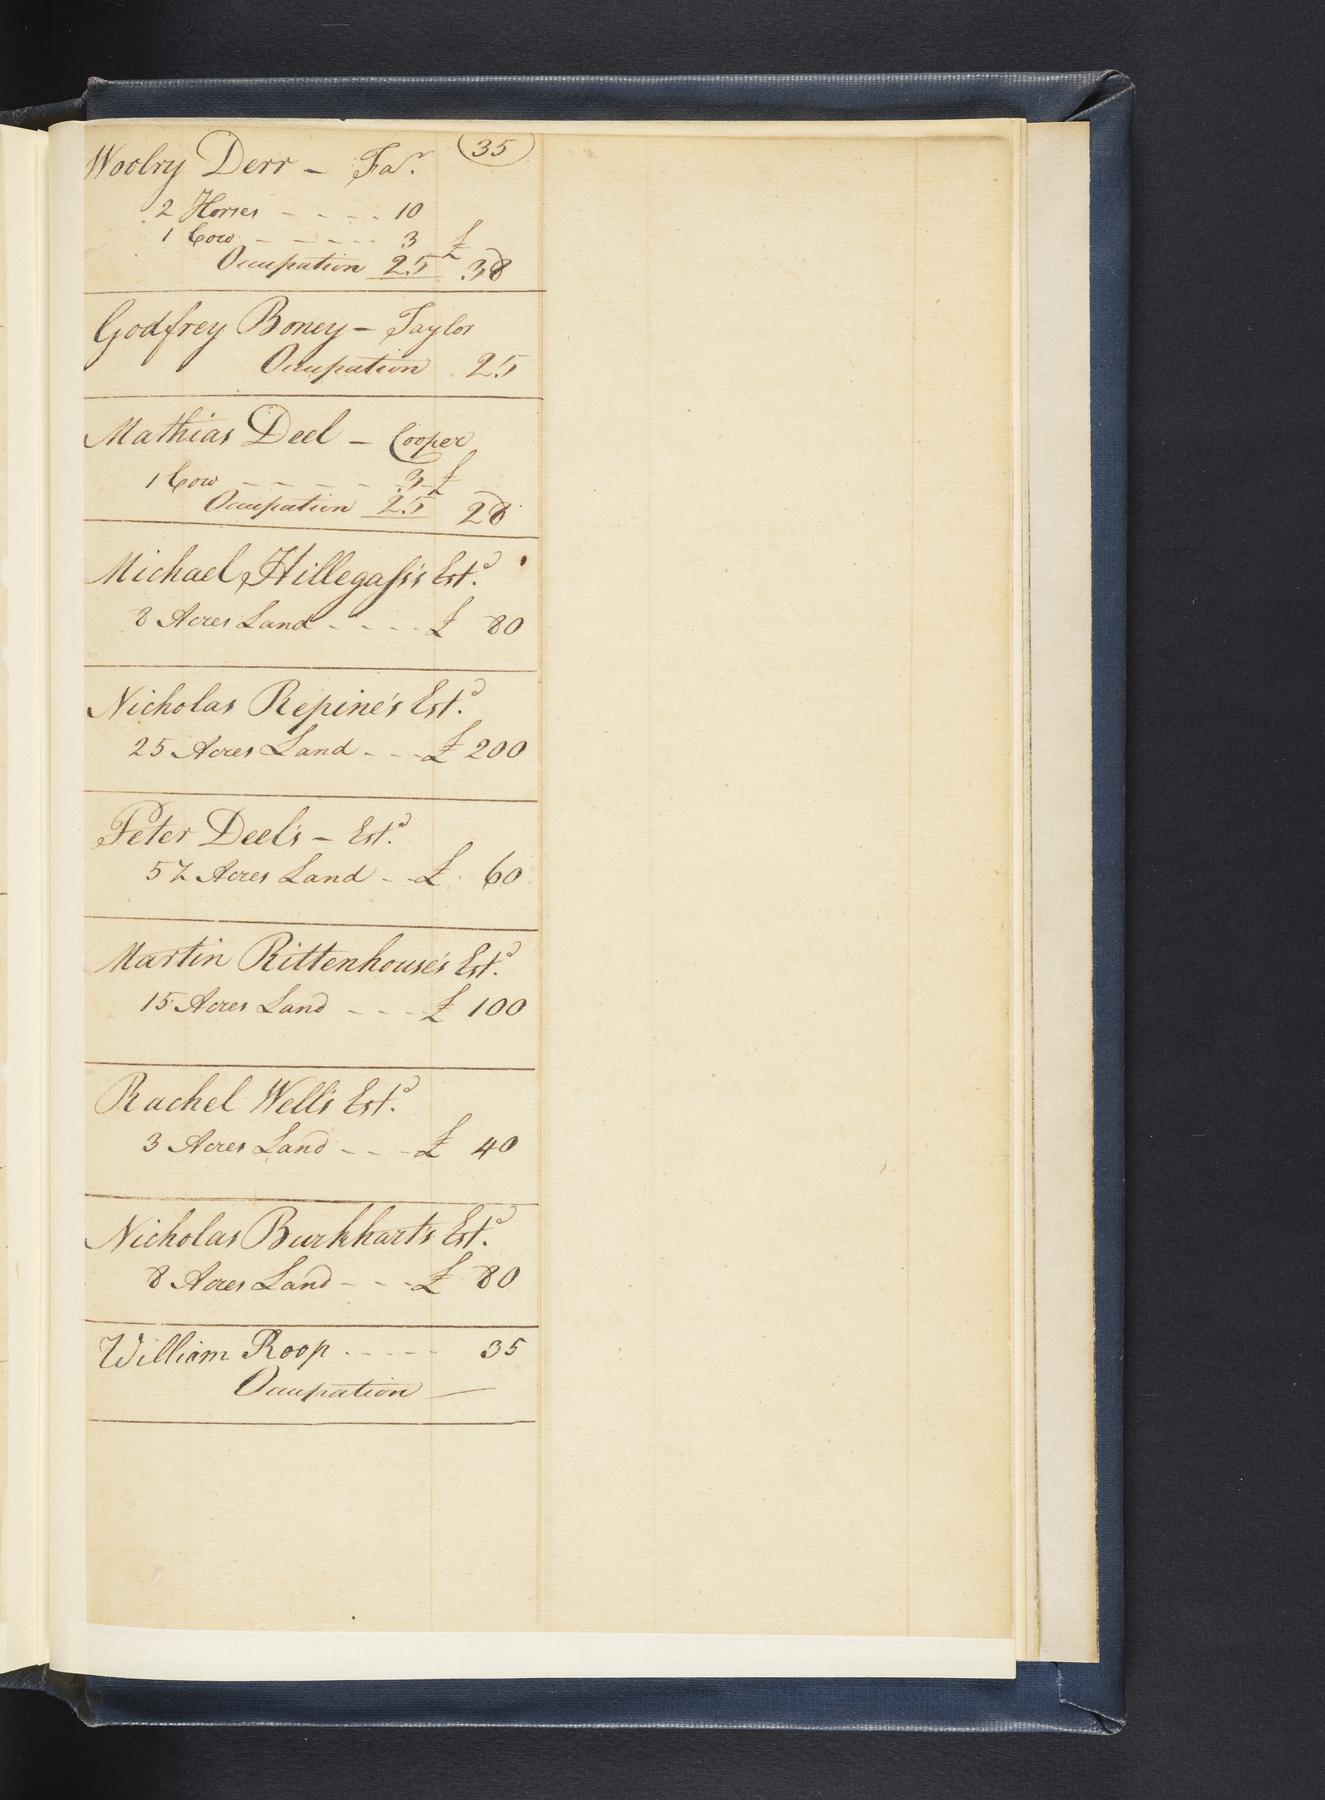 35
Woolry Derr – Far.
2 Horses - - - - 10
1 Cow - - - - - 3 £
Occupation 25 38
Godfrey Boney – Taylor
Occupation 25
Mathias Deel – Cooper
1 Cow - - - - - 3 £
Occupation 25 28
Michael Hillegass's Estd.
8 Acres Land - - - - £ 80
Nicholas Repine's Estd.
25 Acres Land - - - £ 200
Peter Deel's – Estd.
5 Acres Land - - £ 60
Martin Rittenhouse's Estd.
15 Acres Land - - - £ 100
Rachel Well's Estd.
3 Acres Land - - - £ 40
Nicholas Burkhart's Estd.
8 Acres Land - - - £ 80
William Roop - - - - - 35
Occupation —